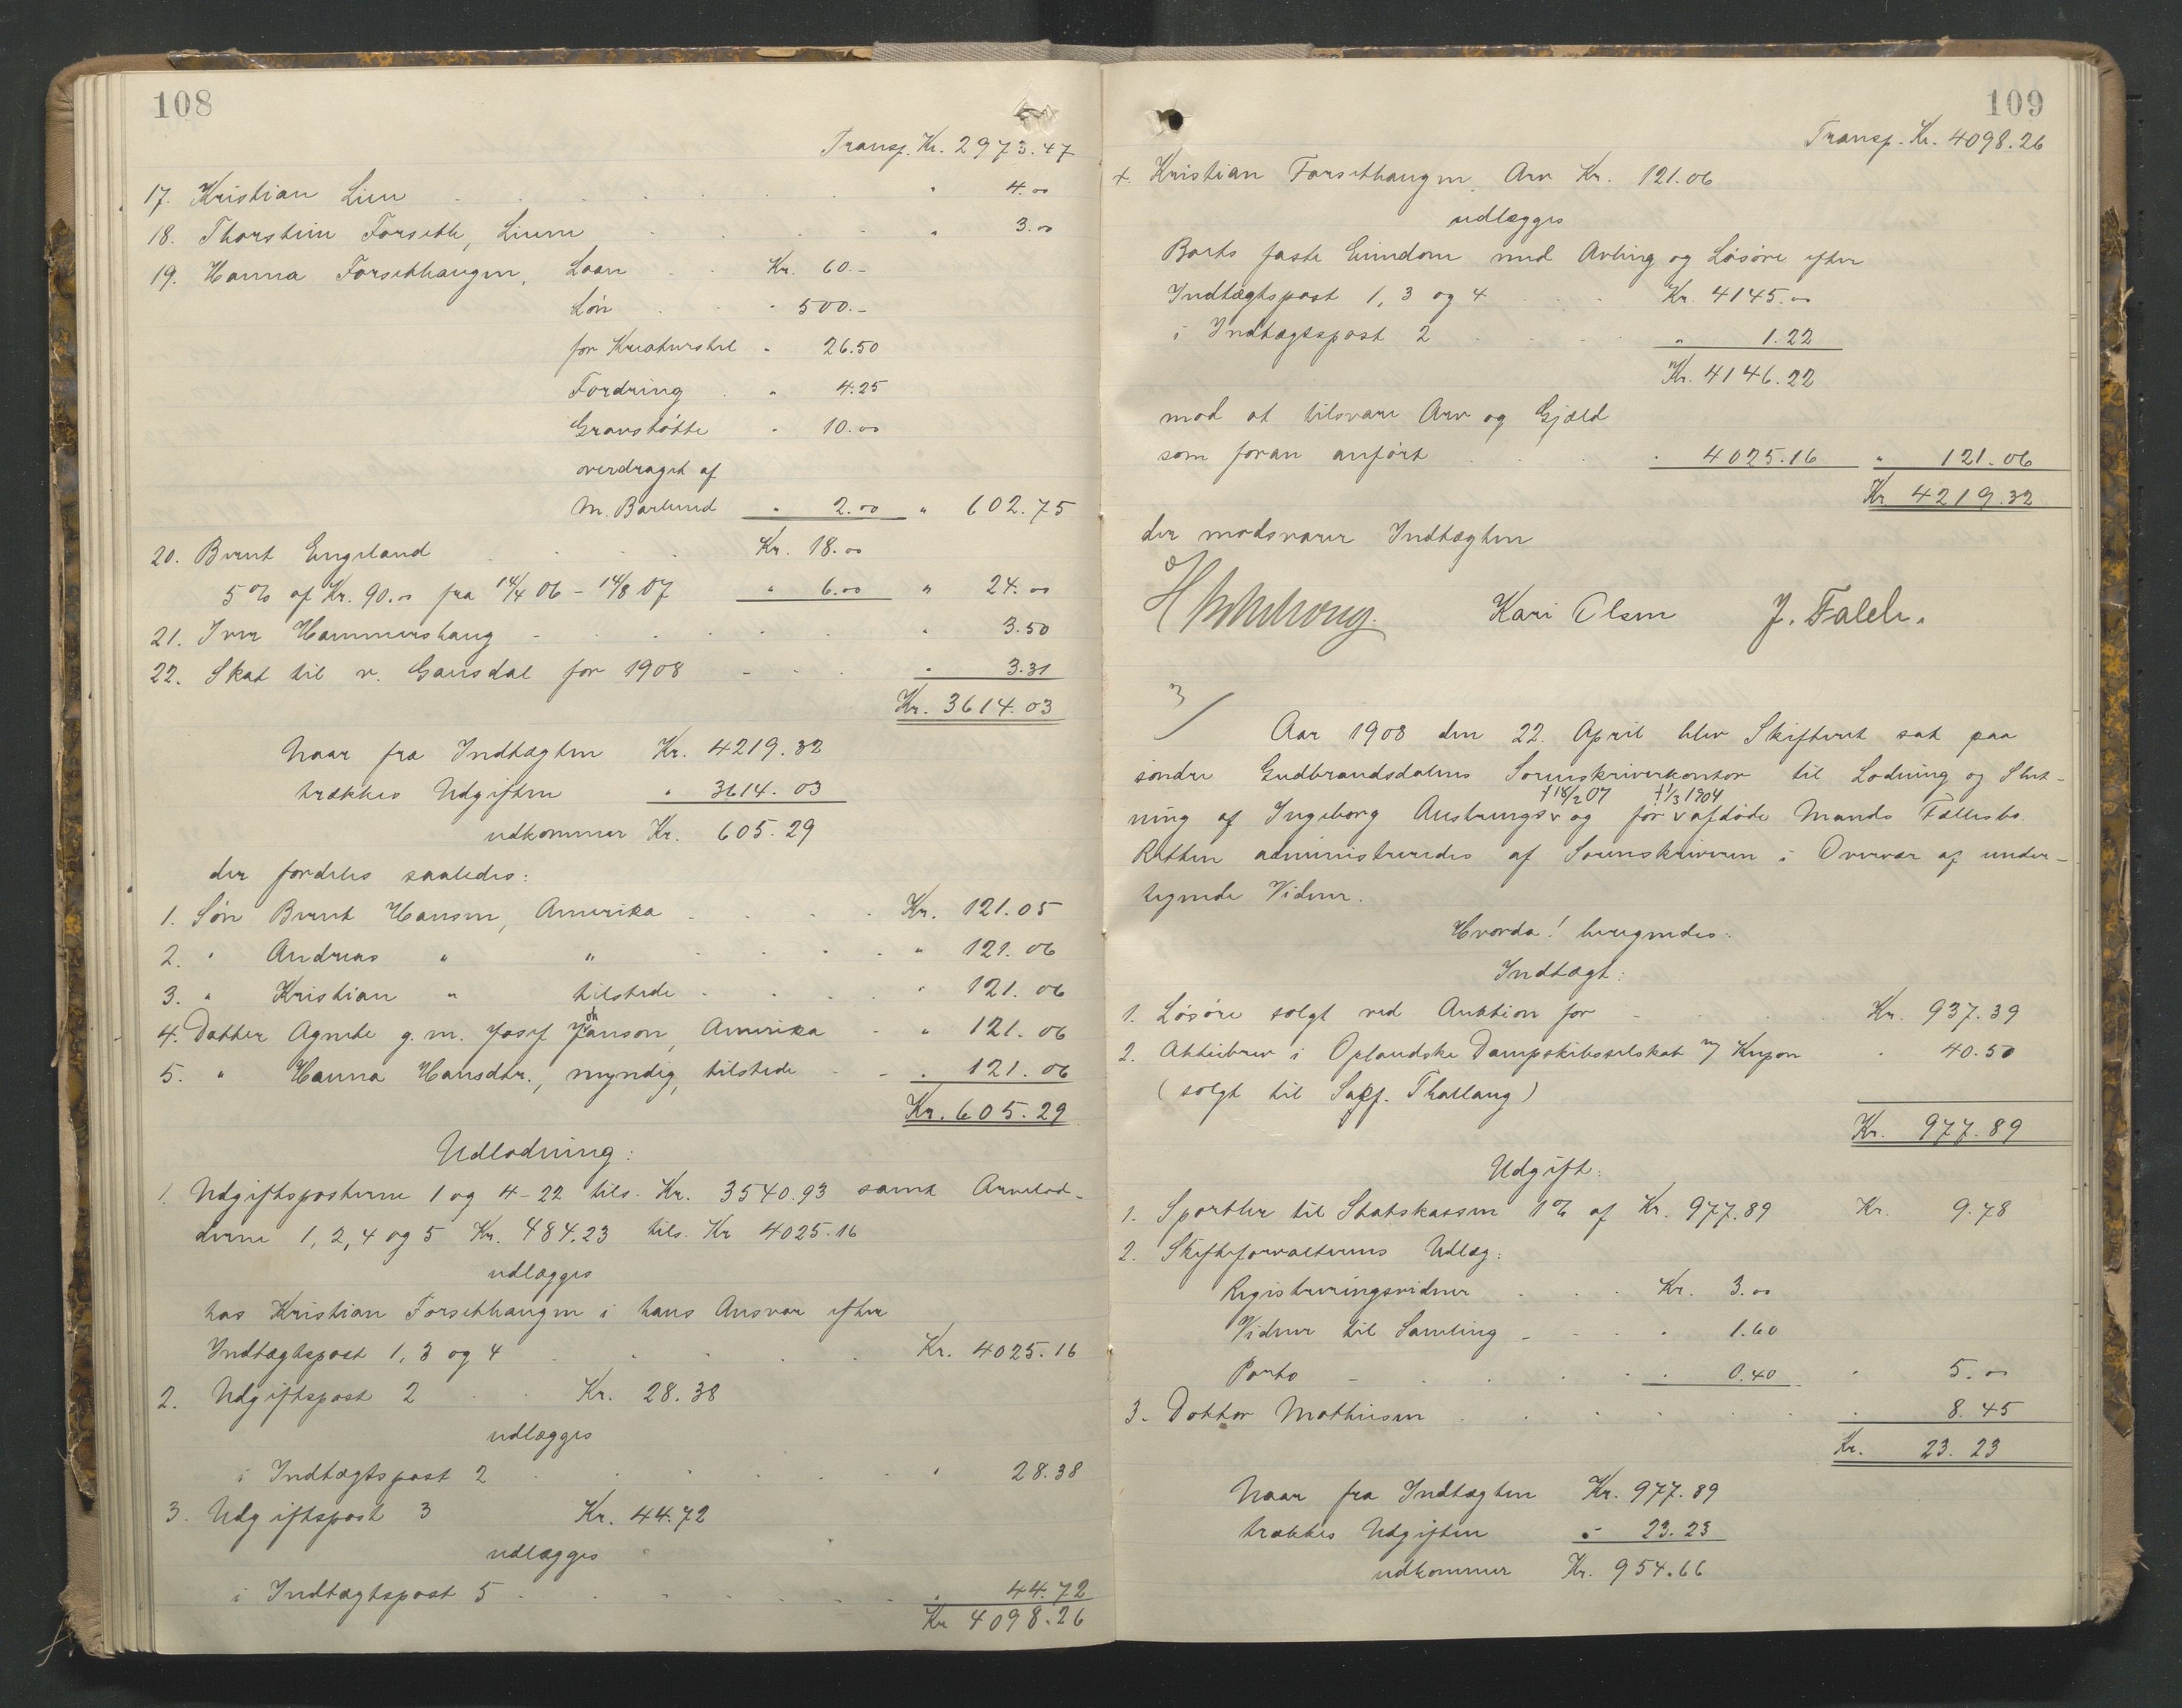 108
Transp. Kr. 2973.47
17. Kristian Lien " 4.00
18. Thorstein Forseth, Lien " 3.00
19. Hanna Forsethhaugen, Laan Kr. 60.-
Løn " 500.-
for Kreaturstel " 26.50
Fordring " 4.25
Gravstøtte " 10.00
overdraget af
M. Barlund " 2.00 " 602.75
20. Bernt Engeland Kr. 18.00
5% af Kr. 90.00 fra 14/4 06 - 14/8 07 " 6.00 " 24.00
21. Iver Hammershaug " 3.50
22. Skat til v. Gausdal for 1908 " 3.31
Kr. 3614.03
Naar fra Indtægten Kr. 4219.32
trækkes Udgiften " 3614.03
udkommer Kr. 605.29
der fordeles saaledes:
1. Søn Bernt Hansen, Amerika Kr. 121.05
2. " Andreas " " " 121.06
3. " Kristian " tilstede " 121.06
4. Datter Agnete g. m. Josef Johanson, Amerika " 121.06
5. " Hanna Hansdtr., myndig, tilstede " 121.06
Kr. 605.29
Udlodning:
1. Udgiftsposterne 1 og 4-22 tils. Kr. 3540.93 samt Arvelod-
derne 1, 2, 4 og 5 Kr. 484.23 tils. Kr 4025.16
udlægges
hos Kristian Forsethhaugen i hans Ansvar efter
Indtægtspost 1, 3 og 4 Kr. 4025.16
2. Udgiftspost 2 Kr. 28.38
udlægges
i Indtægtspost 2 " 28.38
3. Udgiftspost 3 Kr. 44.72
udlægges
i Indtægtspost 5 " 44.72
Kr 4098.26
109
Transp. Kr. 4098.26
4. Kristian Forsethaugen, Arv Kr. 121.06
udlægges
Boets faste Eiendom med Avling og Løsøre efter
Indtægtspost 1, 3 og 4 Kr. 4145.00
i Indtægtspost 2 " 1.22
Kr. 4146.22
mod at tilsvare Arv og Gjæld
som foran anført " 4025.16 " 121.06
Kr 4219.32
der modsvarer Indtægten
Kari Olsen J. Falch.
3/
Aar 1908 den 22. April blev Skifteret sat paa
søndre Gudbrandsdalens Sorenskriverkontor til Lodning og Slut-
†18/2 07 †1/3 1904
ning af Ingeborg Austrengs og før afdøde Mands Fællesbo.
Retten administreredes af Sorenskriveren i Overvær af under-
tegnede Vidner.
Hvorda! beregnedes:
Indtægt:
1. Løsøre solgt ved Auktion for Kr. 937.39
2. Aktiebrev i Oplandske Dampskibsselskab m/ Kupon " 40.50
(solgt til Sagf. Thallaug)
Kr. 977.89
Udgift:
1. Sportler til Statskassen 1% af Kr. 977.89 Kr. 9.78
2. Skifteforvalterens Udlæg:
Registreringsvidner Kr. 3.00
Vidner til Samling " 1.60
Porto " 0.40 " 5.00
3. Doktor Mathiesen " 8.45
Kr. 23.23
Naar fra Indtægten Kr. 977.89
trækkes Udgiften " 23.23
udkommer Kr. 954.66